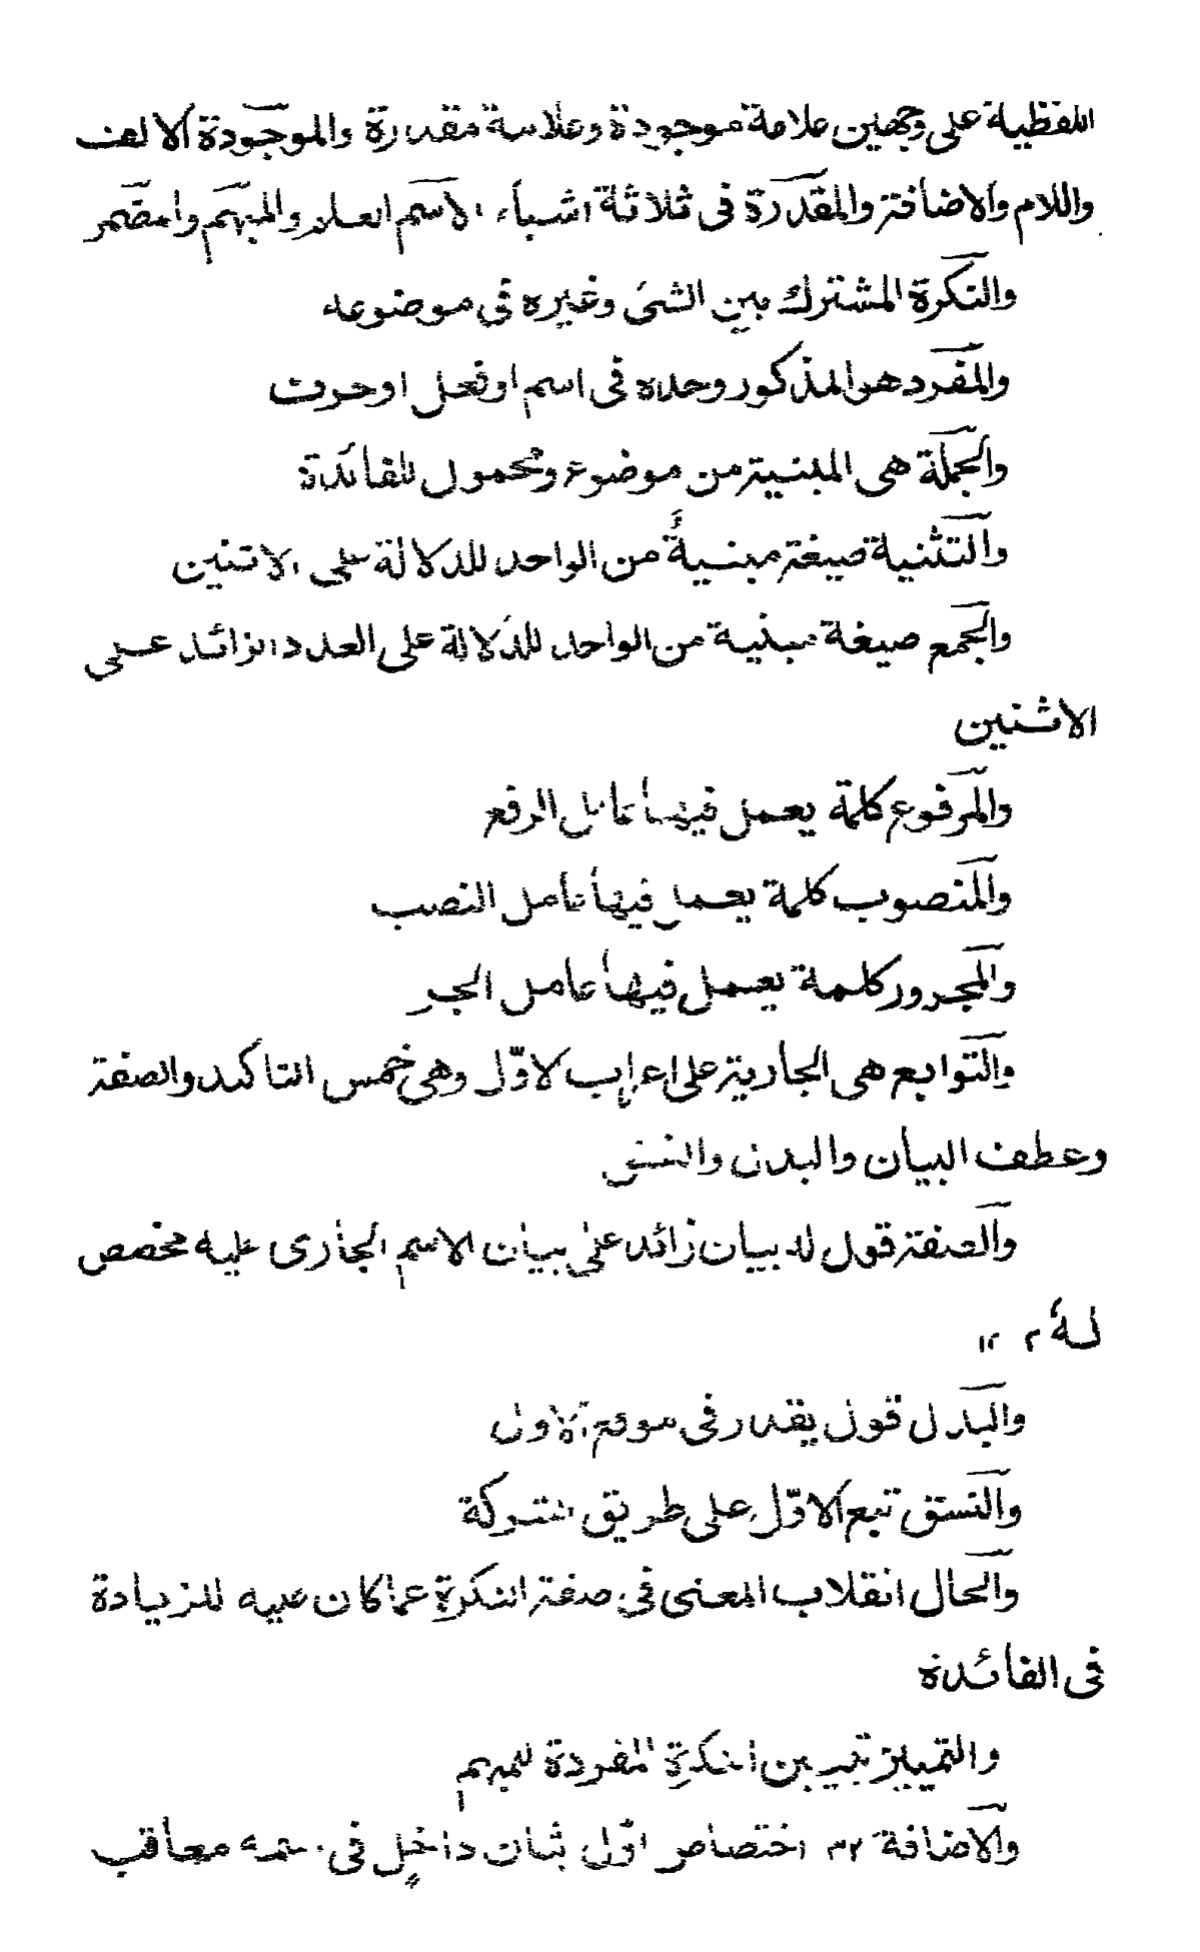 اللفظية على وجهين علامة موجودة وعلامة مقدرة والموجودة الالف
واللام والاضافة والمقدرة فى ثلاثة اشياء الاسم العلم والمبهم والمضمر
والنكرة المشترك بين الشئ وغيره فى موضوعه
والمفرد هو المذكور وحده فى اسم او فعل او حرف
والجملة هى المبنية من موضوع ومحمول للفائدة
والتثنية صيغة مبنيةٌ من الواحد للدلالة على الاثنين
والجمع صيغة مبنية من الواحد للدلالة على العدد الزائد على
الاثنين
والمرفوع كلمة يعمل فيها عامل الرفع
والمنصوب كلمة يعمل فيها عامل النصب
والمجرور كلمة يعمل فيها عامل الجر
والتوابع هى الجارية على اعراب الاوّل وهى خمس التاكيد والصفة
وعطف البيان والبدل والنسق
والصفة قول له بيان زائد على بيان الاسم الجارى عليه مخصص
لهُ ٢ ١٢
والبدل قول يقدر فى موقع الاول
والنسق تبع الاوّل على طريق الشركة
والحال انقلاب المعنى فى صفة النكرة عما كان عليه للزيادة
فى الفائدة
والتمييز تبيين النكرة المفردة للمبهم
والاضافة ٣٢ اختصاص اوّل بثان داخل فى معاقب